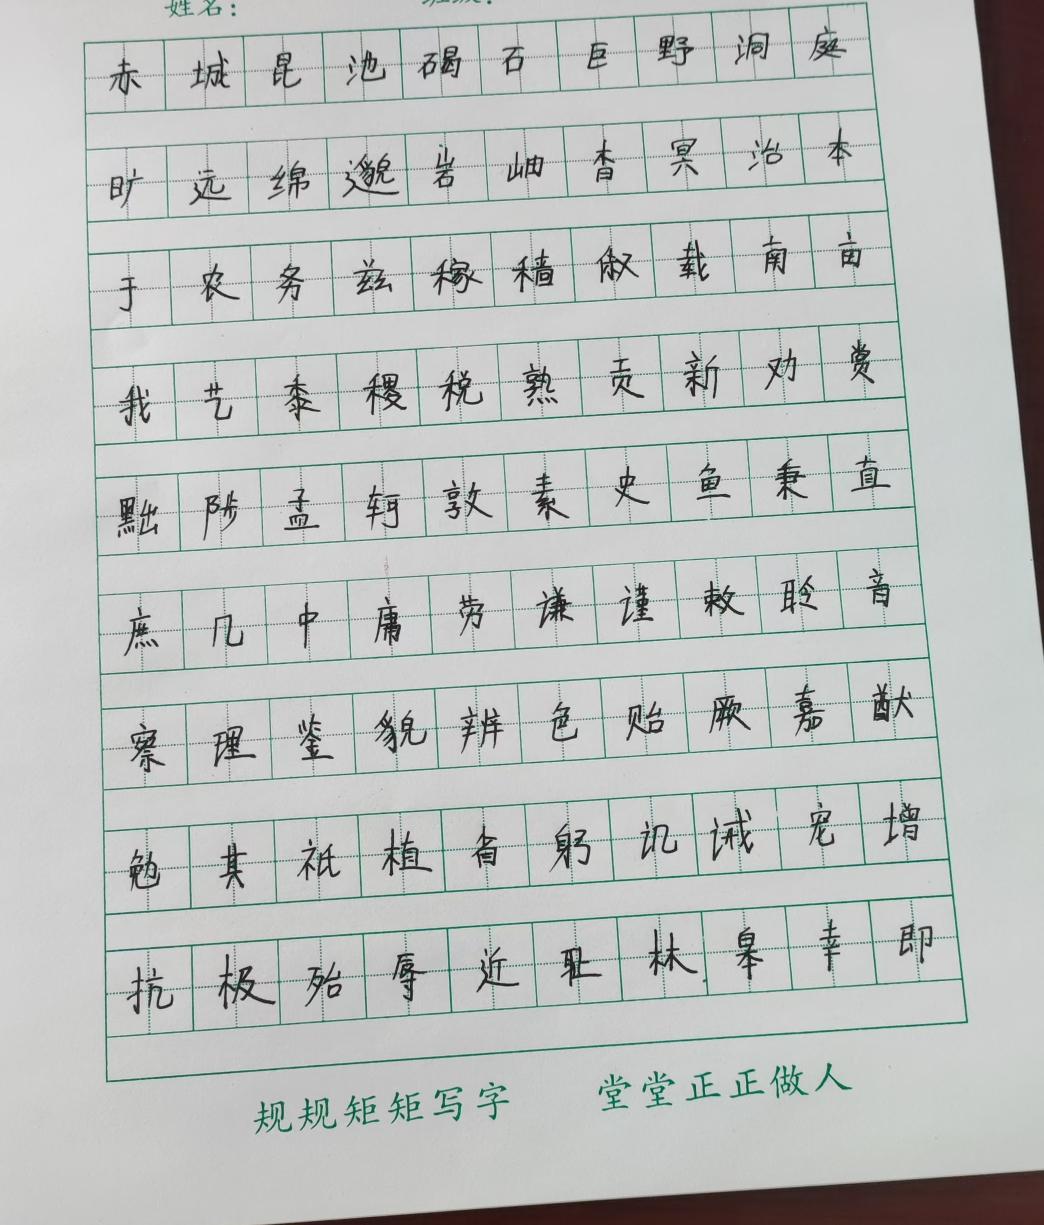 姓名： 班级：
赤城昆池碣石巨野洞庭
旷远绵邈岩岫杳冥治本
于农务兹稼穑俶载南亩
我艺黍稷税熟贡新劝赏
黜陟孟轲敦素史鱼秉直
庶几中庸劳谦谨敕聆音
察理鉴貌辨色贻厥嘉猷
勉其祇植省躬讥诫宠增
抗极殆辱近耻林皋幸即
规规矩矩写字 堂堂正正做人